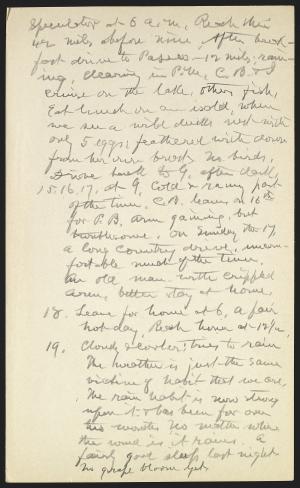 Speculator at 6 a.m. Reach there
42 miles before nine. After break-
fast drive to Piseco - 12 miles; rain-
ing, clearing in P.M. C.B. & I
cruise on the lake, others fish,
Eat lunch on an island where
we see a wild ducks nest with
only 5 eggs; feathered with down
from her own breast. No birds,
drove back to G. after dark,
15, 16, 17, at G, Cold & rainy part
of the time. C.B. leaves on 16th
for P.B. arm gaining, but
On Sunday the 17
a long country drive, uncom-
fortable much of the time.
An old man with crippled
arm, better stay at home.
18. Leave for home at 6, a fair
hot day, Reach home at 12
19. Cloudy & cooler; tries to rain
The weather is just the same
victim of habit that we are,
The rain habit is now strong
upon it & has been for over
two months No matter where
the wind is it rains. A
fairly good sleep last night
No grape bloom yet